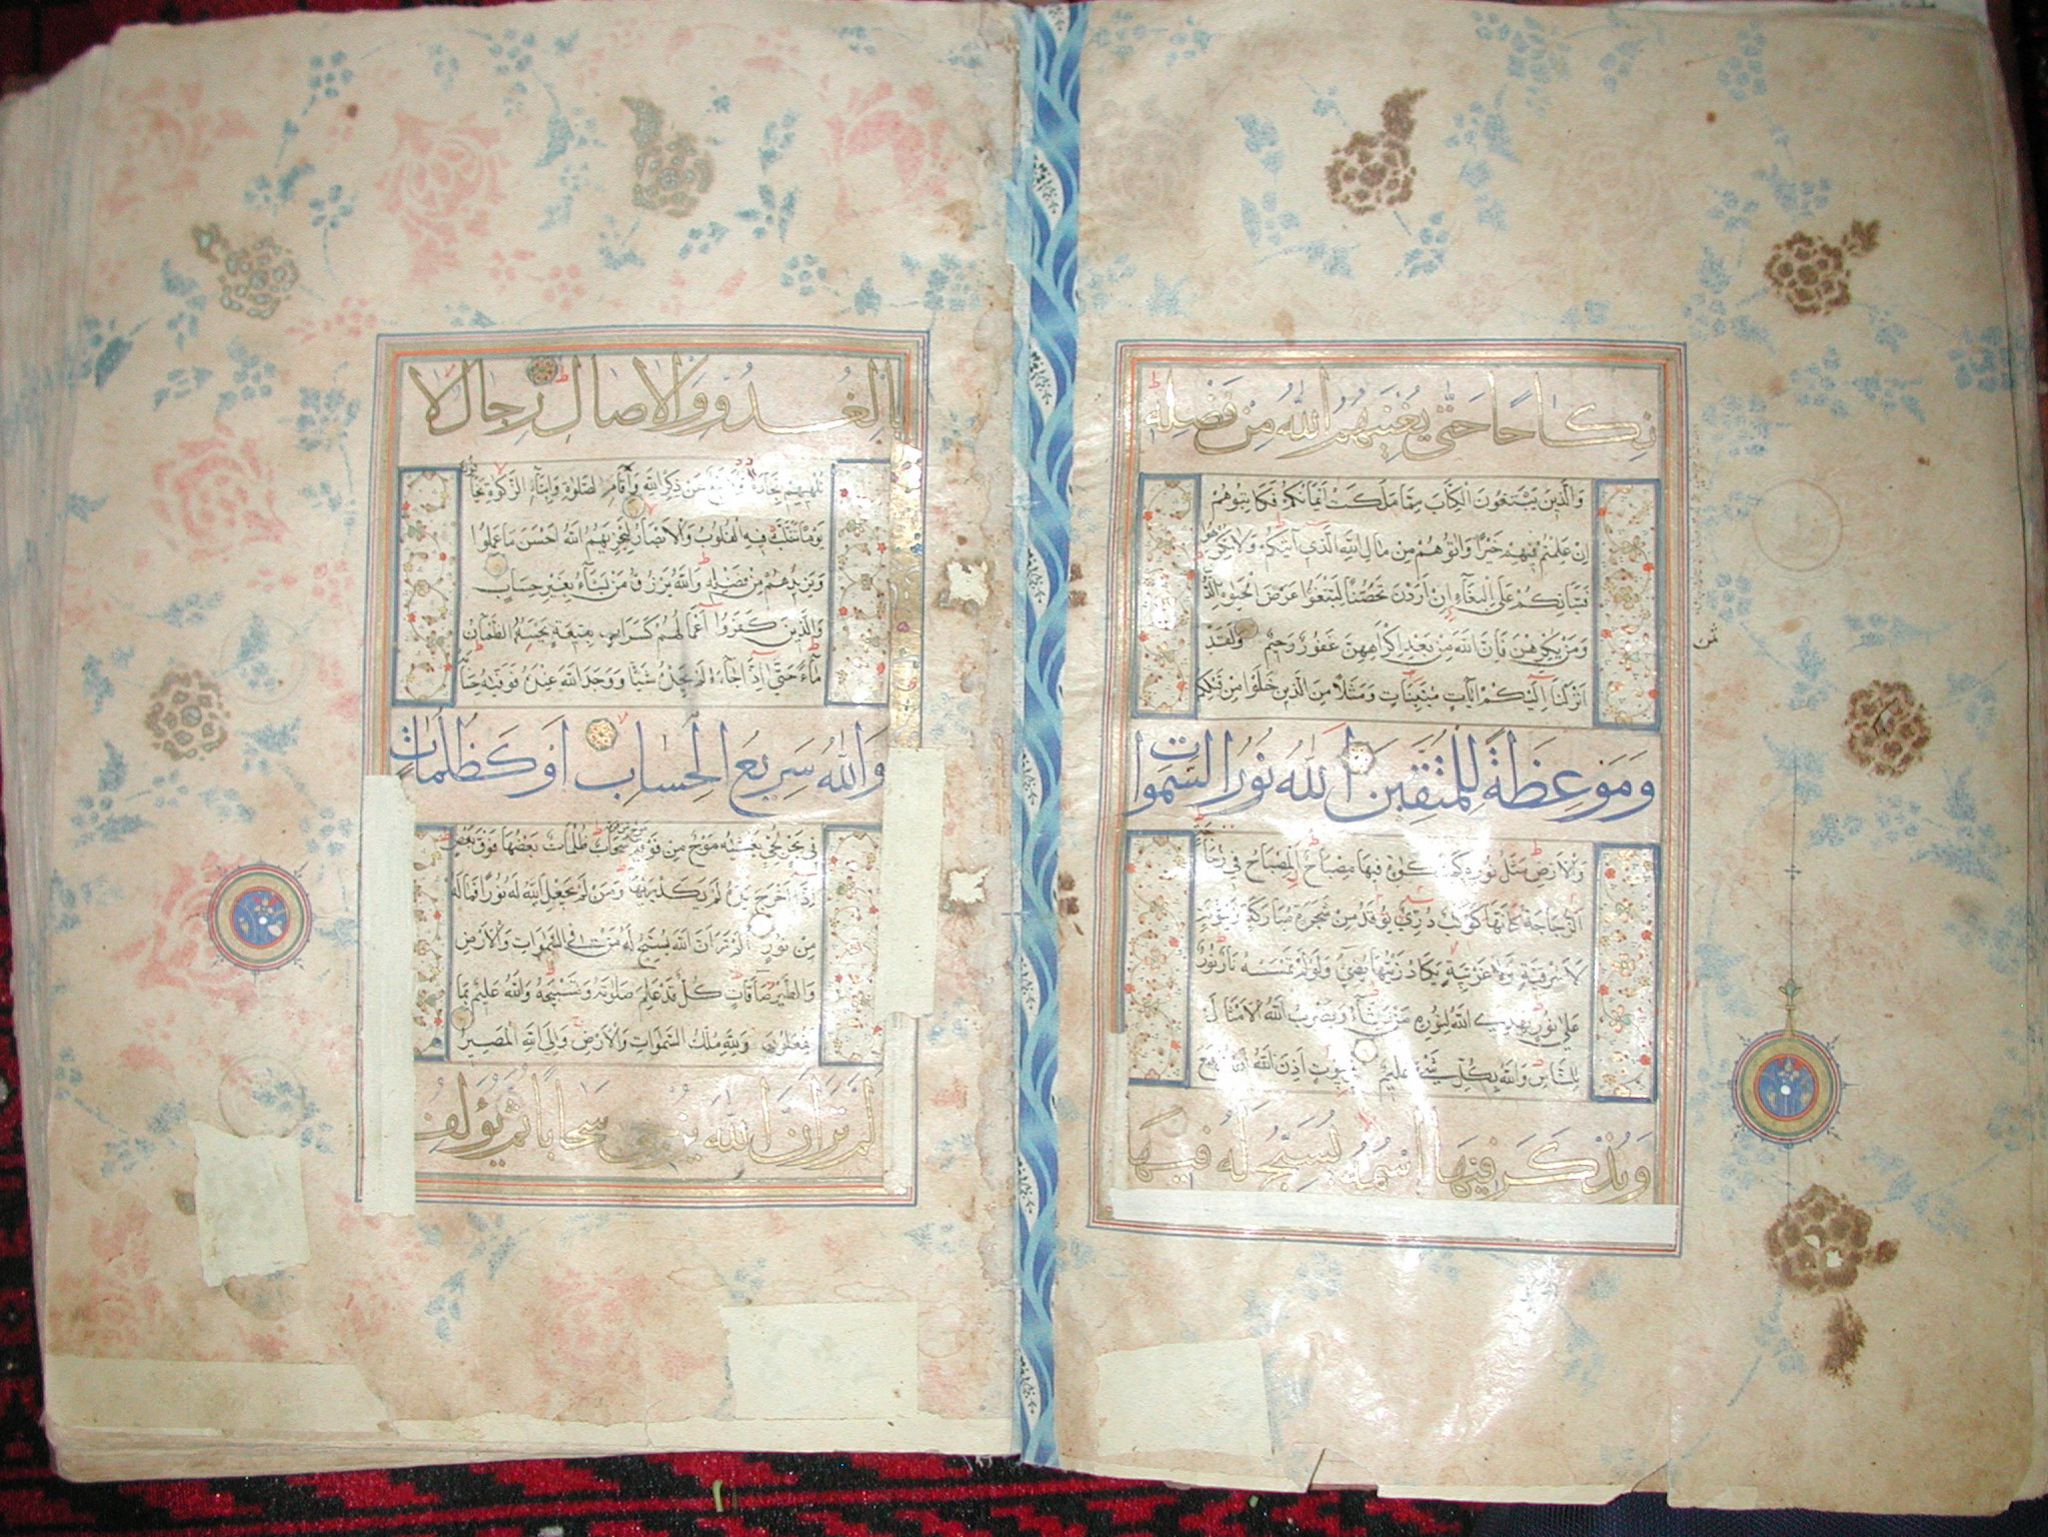 نِكَاحًا حَتّٰى يُغْنِيَهُمُ اللّٰهُ مِنْ فَضْلِهِ
وَالَّذِينَ يَبْتَغُونَ الْكِتَابَ مِمَّا مَلَكَتْ أَيْمَانُكُمْ فَكَاتِبُوهُمْ
إِنْ عَلِمْتُمْ فِيهِمْ خَيْرًا وَآتُوهُمْ مِنْ مَالِ اللّٰهِ الَّذِي آتٰيكُمْ وَلَا تُكْرِهُوا
فَتَيَاتِكُمْ عَلَى الْبِغَاءِ إِنْ أَرَدْنَ تَحَصُّنًا لِتَبْتَغُوا عَرَضَ الْحَيٰوةِ الدُّنْيَا
وَمَنْ يُكْرِهْهُنَّ فَإِنَّ اللّٰهَ مِنْ بَعْدِ إِكْرَاهِهِنَّ غَفُورٌ رَحِيمٌ وَلَقَدْ
أَنْزَلْنَا إِلَيْكُمْ آيَاتٍ مُبَيِّنَاتٍ وَمَثَلًا مِنَ الَّذِينَ خَلَوْا مِنْ قَبْلِكُمْ
وَمَوْعِظَةً لِلْمُتَّقِينَ اللّٰهُ نُورُ السَّمٰوَاتِ
وَالْأَرْضِ مَثَلُ نُورِهِ كَمِشْكٰوةٍ فِيهَا مِصْبَاحٌ الْمِصْبَاحُ فِي زُجَاجَةٍ
الزُّجَاجَةُ كَأَنَّهَا كَوْكَبٌ دُرِّيٌّ يُوقَدُ مِنْ شَجَرَةٍ مُبَارَكَةٍ زَيْتُونَةٍ
لَا شَرْقِيَّةٍ وَلَا غَرْبِيَّةٍ يَكَادُ زَيْتُهَا يُضِيءُ وَلَوْ لَمْ تَمْسَسْهُ نَارٌ نُورٌ
عَلٰى نُورٍ يَهْدِي اللّٰهُ لِنُورِهِ مَنْ يَشَاءُ وَيَضْرِبُ اللّٰهُ الْأَمْثَالَ
لِلنَّاسِ وَاللّٰهُ بِكُلِّ شَيْءٍ عَلِيمٌ فِي بُيُوتٍ أَذِنَ اللّٰهُ أَنْ تُرْفَعَ
وَيُذْكَرَ فِيهَا اسْمُهُ يُسَبِّحُ لَهُ فِيهَا
ثمن
بِالْغُدُوِّ وَالْآصَالِ رِجَالٌ لَا
تُلْهِيهِمْ تِجَارَةٌ وَلَا بَيْعٌ عَنْ ذِكْرِ اللّٰهِ وَأَقَامِ الصَّلٰوةِ وَإِيتَاءِ الزَّكٰوةِ يَخَافُونَ
يَوْمًا تَتَقَلَّبُ فِيهِ الْقُلُوبُ وَالْأَبْصَارُ لِيَجْزِيَهُمُ اللّٰهُ أَحْسَنَ مَا عَمِلُوا
وَيَزِيدَهُمْ مِنْ فَضْلِهِ وَاللّٰهُ يَرْزُقُ مَنْ يَشَاءُ بِغَيْرِ حِسَابٍ
وَالَّذِينَ كَفَرُوا أَعْمَالُهُمْ كَسَرَابٍ بِقِيعَةٍ يَحْسَبُهُ الظَّمْآنُ
مَاءً حَتّٰى إِذَا جَاءَهُ لَمْ يَجِدْهُ شَيْئًا وَوَجَدَ اللّٰهَ عِنْدَهُ فَوَفّٰيهُ حِسَابَهُ
وَاللّٰهُ سَرِيعُ الْحِسَابِ أَوْ كَظُلُمَاتٍ
فِي بَحْرٍ لُجِّيٍّ يَغْشٰيهُ مَوْجٌ مِنْ فَوْقِهِ مَوْجٌ مِنْ فَوْقِهِ سَحَابٌ ظُلُمَاتٌ بَعْضُهَا فَوْقَ بَعْضٍ
إِذَا أَخْرَجَ يَدَهُ لَمْ يَكَدْ يَرٰيهَا وَمَنْ لَمْ يَجْعَلِ اللّٰهُ لَهُ نُورًا فَمَا لَهُ
مِنْ نُورٍ أَلَمْ تَرَ أَنَّ اللّٰهَ يُسَبِّحُ لَهُ مَنْ فِي السَّمٰوَاتِ وَالْأَرْضِ
وَالطَّيْرُ صَافَّاتٍ كُلٌّ قَدْ عَلِمَ صَلَاتَهُ وَتَسْبِيحَهُ وَاللّٰهُ عَلِيمٌ بِمَا
يَفْعَلُونَ وَلِلّٰهِ مُلْكُ السَّمٰوَاتِ وَالْأَرْضِ وَإِلَى اللّٰهِ الْمَصِيرُ
أَلَمْ تَرَ أَنَّ اللّٰهَ يُزْجِي سَحَابًا ثُمَّ يُؤَلِّفُ